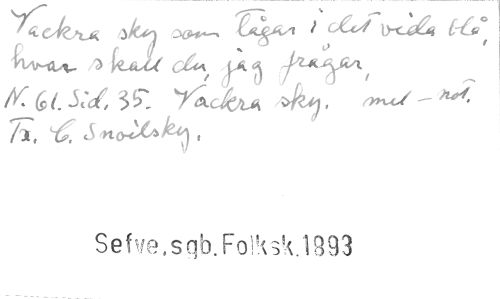 Vackra sky som tågar i det vida blå,
hvar skall du, jag frågar,
N. 61. Sid. 35. Vackra sky. mel-not.
Tr. C. Snoilsky.
Sefve.sgb.Folksk.1893